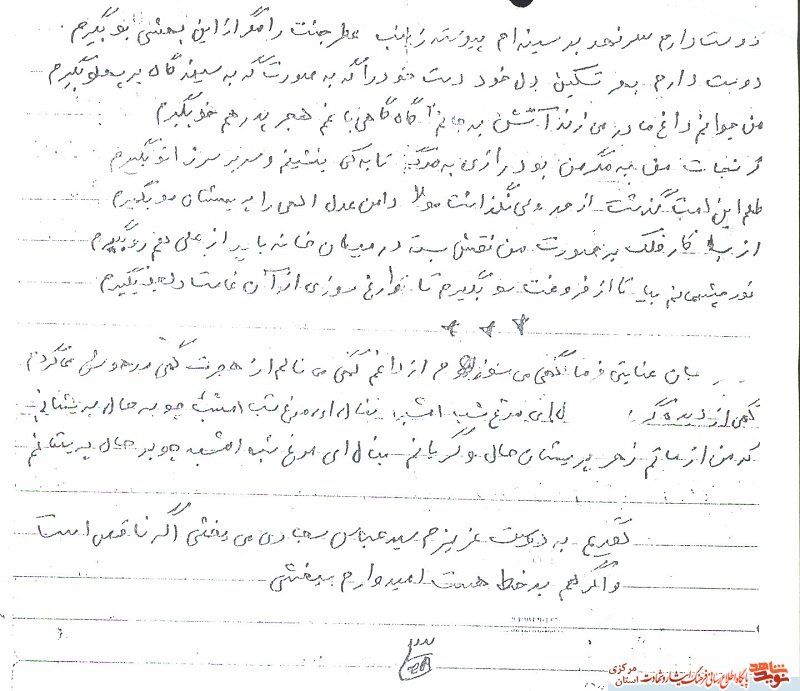 دوست دارم سر نهد بر سینه‌ام پیوسته زینب عطر جنت را مگر از این بهشتی بو بگیرم
دوست دارم بهر تسکین دل خود دست خود را گه به صورت گه به سینه گاه بر پهلو بگیرم
من جوانم داغ مادر می زند آتش به جانم گاه گاهی با غم هجر پدر هم خو بگیرم
از نجات من به مرگ من بود رازی به مرگم تا به کی بنشینم و سر بر سر زانو بگیرم
ظلم این امت گذشت از حد ولی نگذاشت مولا دامن عدل الهی را پریشان مو بگیرم
از فلک بر صورت من نقش بسته در میان خانه باید از علی هم رو بگیرم
نور چشمانم بیا تا از فروغت سو بگیرم تا روزی از آن
جان عنایتی فرما گهی می سوزم از داغم گهی می نالم از هجرت گهی
گهی از دیده گر ای مرغ شب امشب بنال ای مرغ شب امشب چو بر حال پریشانی
که من از ماتم زهرا پریشان حال و گریانم بنال ای مرغ شب امشب چو بر حال پریشانم
تقدیم به دوست عزیزم سید عباس سجادی می بخشی اگر ناقص است
و اگر هم بد خط هست امیدوارم ببخشی
نوید شاهد
مرکزی
پایگاه اطلاع رسانی فرهنگ ایثار و شهادت استان